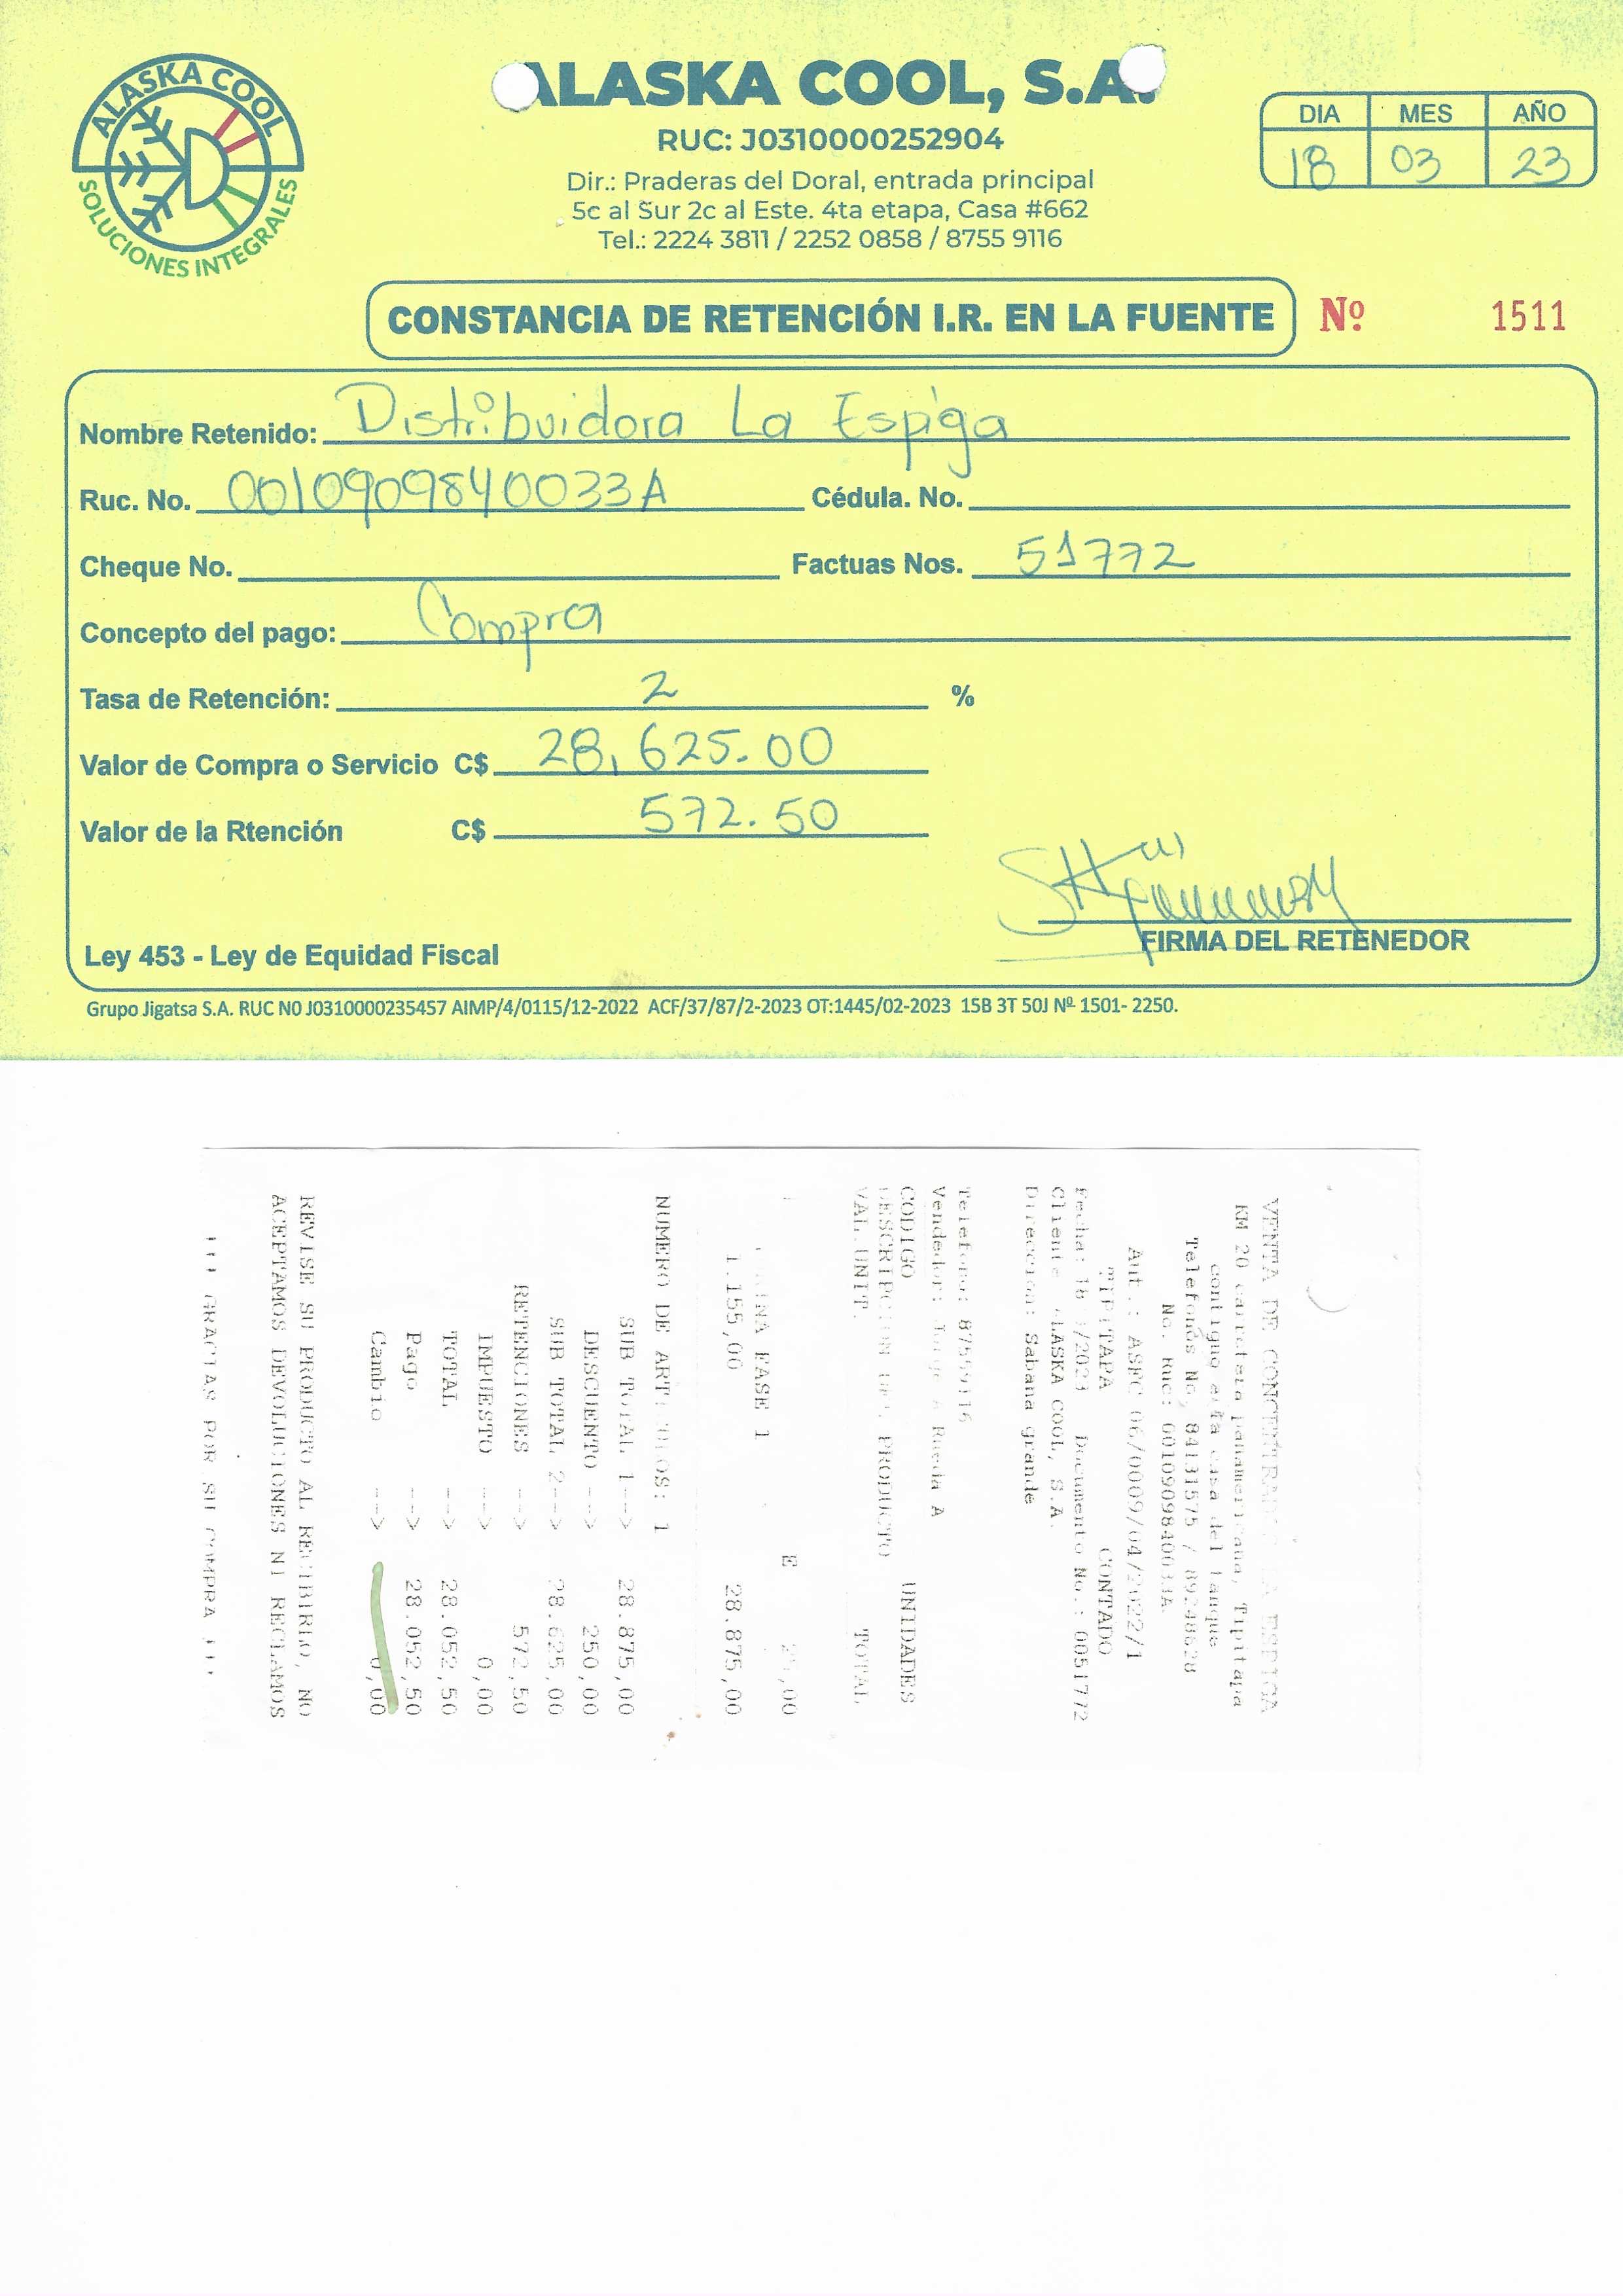 ALASKA COOL
SOLUCIONES INTEGRALES
ALASKA COOL, S.A.
RUC: J0310000252904
Dir.: Praderas del Doral, entrada principal
5c al Sur 2c al Este. 4ta etapa, Casa #662
Tel.: 2224 3811 / 2252 0858 / 8755 9116
DIA MES AÑO
18 03 23
CONSTANCIA DE RETENCIÓN I.R. EN LA FUENTE Nº 1511
Nombre Retenido: Distribuidora La Espiga
Ruc. No. 0010909840033A Cédula. No.
Cheque No. Factuas Nos. 51772
Concepto del pago: Compra
Tasa de Retención: 2 %
Valor de Compra o Servicio C$ 28,625.00
Valor de la Rtención C$ 572.50
FIRMA DEL RETENEDOR
Ley 453 - Ley de Equidad Fiscal
Grupo Jigatsa S.A. RUC N0 J0310000235457 AIMP/4/0115/12-2022 ACF/37/87/2-2023 OT:1445/02-2023 15B 3T 50J Nº 1501- 2250.
VENTA DE
KM 20 carretera panamericana, Tipitapa
contiguo a la casa del tanque
Telefonos No. 84131575 /
No. RUC: 0010909840033A
Aut.: ASFC 06/0009/04/2022/1
TIPITAPA CONTADO
Fecha: /2023 Documento No.: 0051772
Cliente ALASKA COOL, S.A.
Direccion: Sabana grande
Telefono: 87559116
Vendedor: Rueda A
CODIGO UNIDADES
DESCRIPCION DEL PRODUCTO
VAL.UNIT. TOTAL
E
FASE 1
1.155,00 28.875,00
NUMERO DE ARTICULOS: 1
SUB TOTAL 1--> 28.875,00
DESCUENTO --> 250,00
SUB TOTAL 2--> 28.625,00
RETENCIONES --> 572,50
IMPUESTO --> 0,00
TOTAL --> 28.052,50
Pago --> 28.052,50
Cambio --> 0,00
REVISE SU PRODUCTO AL RECIBIRLO, NO
ACEPTAMOS DEVOLUCIONES NI RECLAMOS
!!! GRACIAS POR SU COMPRA !!!